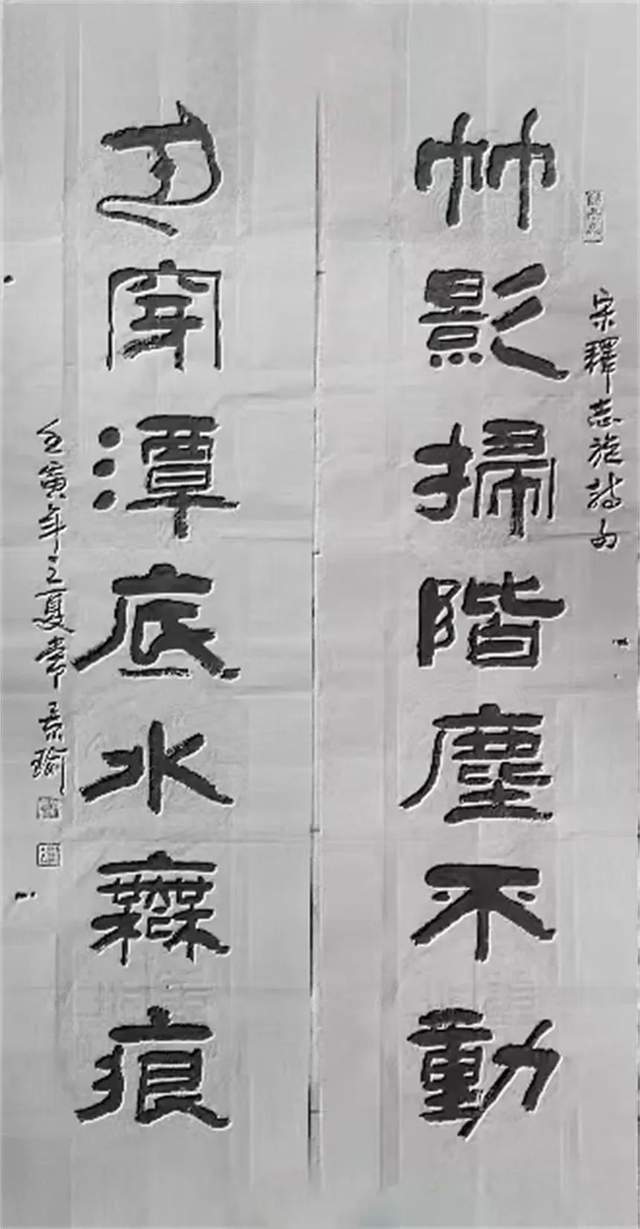 宋釋志旋詩句
竹影掃階塵不動
月穿潭底水無痕
壬寅年之夏景瑜